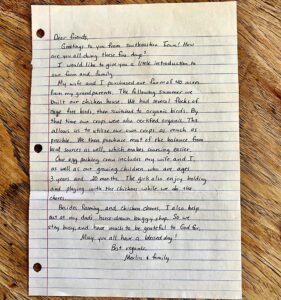 Dear friends,
Greetings to you from southeastern Iowa! How
are you all doing these fine days?
I would like to give you a little introduction to
our farm and family.
My wife and I purchased our farm of 40 acres
from my grandparents. The following summer we
built our chicken house. We had several flocks of
cage free birds, then switched to organic birds. By
that time our crops were also certified organic. This
allows us to utilize our own crops as much as
possible. We then purchase most of the balance from
local sources as well, which makes sourcing easier.
Our egg packing crew includes my wife and I,
as well as our growing children who are ages
3 years and 20 months. The girls also enjoy holding
and playing with the chickens while we do the
chores.
Besides farming, and chicken chores, I also help
out at my dad's horse drawn buggy shop. So we
stay busy, and have much to be grateful to God for.
May you all have a blessed day!
Best regards,
Merlin & family